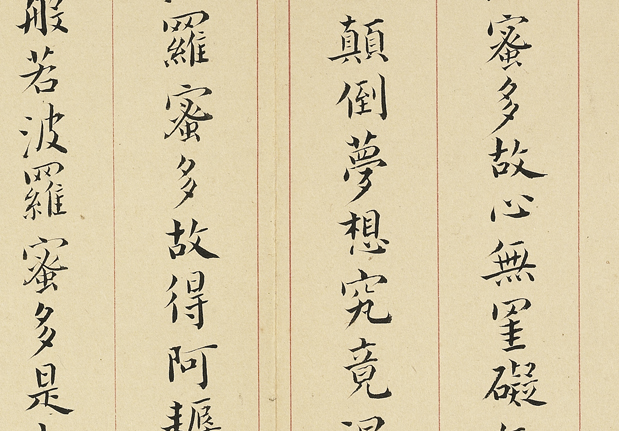 蜜多故心無罣礙
顛倒夢想究竟
羅蜜多故得阿耨
般若波羅蜜多是